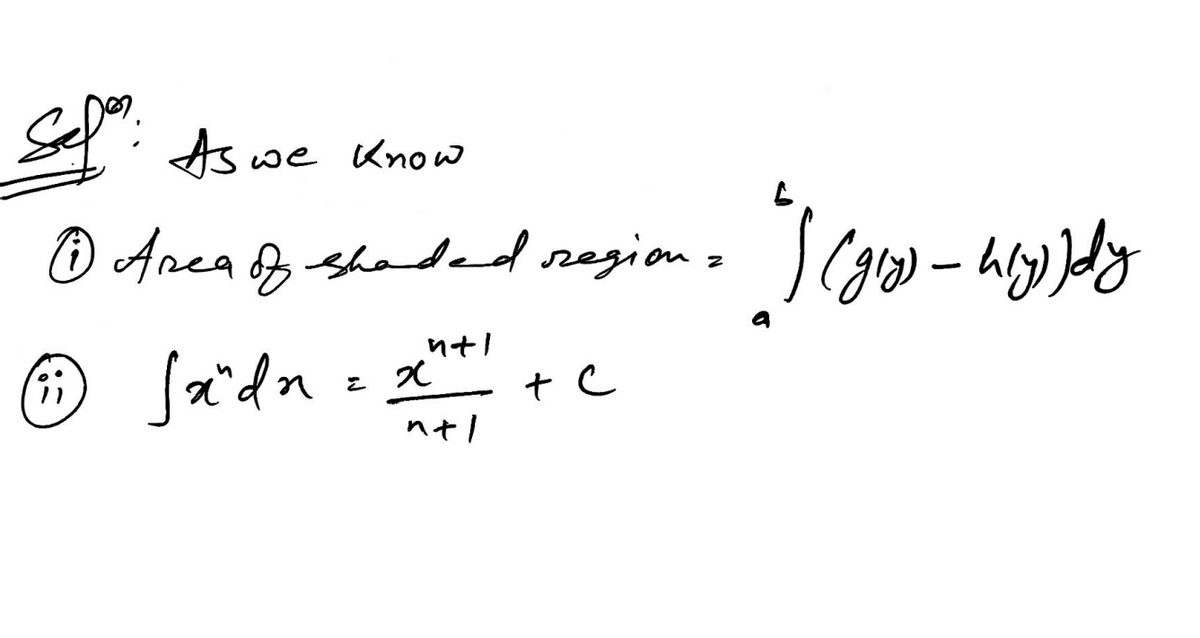 Solⁿ: As we know
(i) Area of shaded region = ∫ₐᵇ (g(y) – h(y)) dy
(ii) ∫xⁿ dx = xⁿ⁺¹/n+1 + c